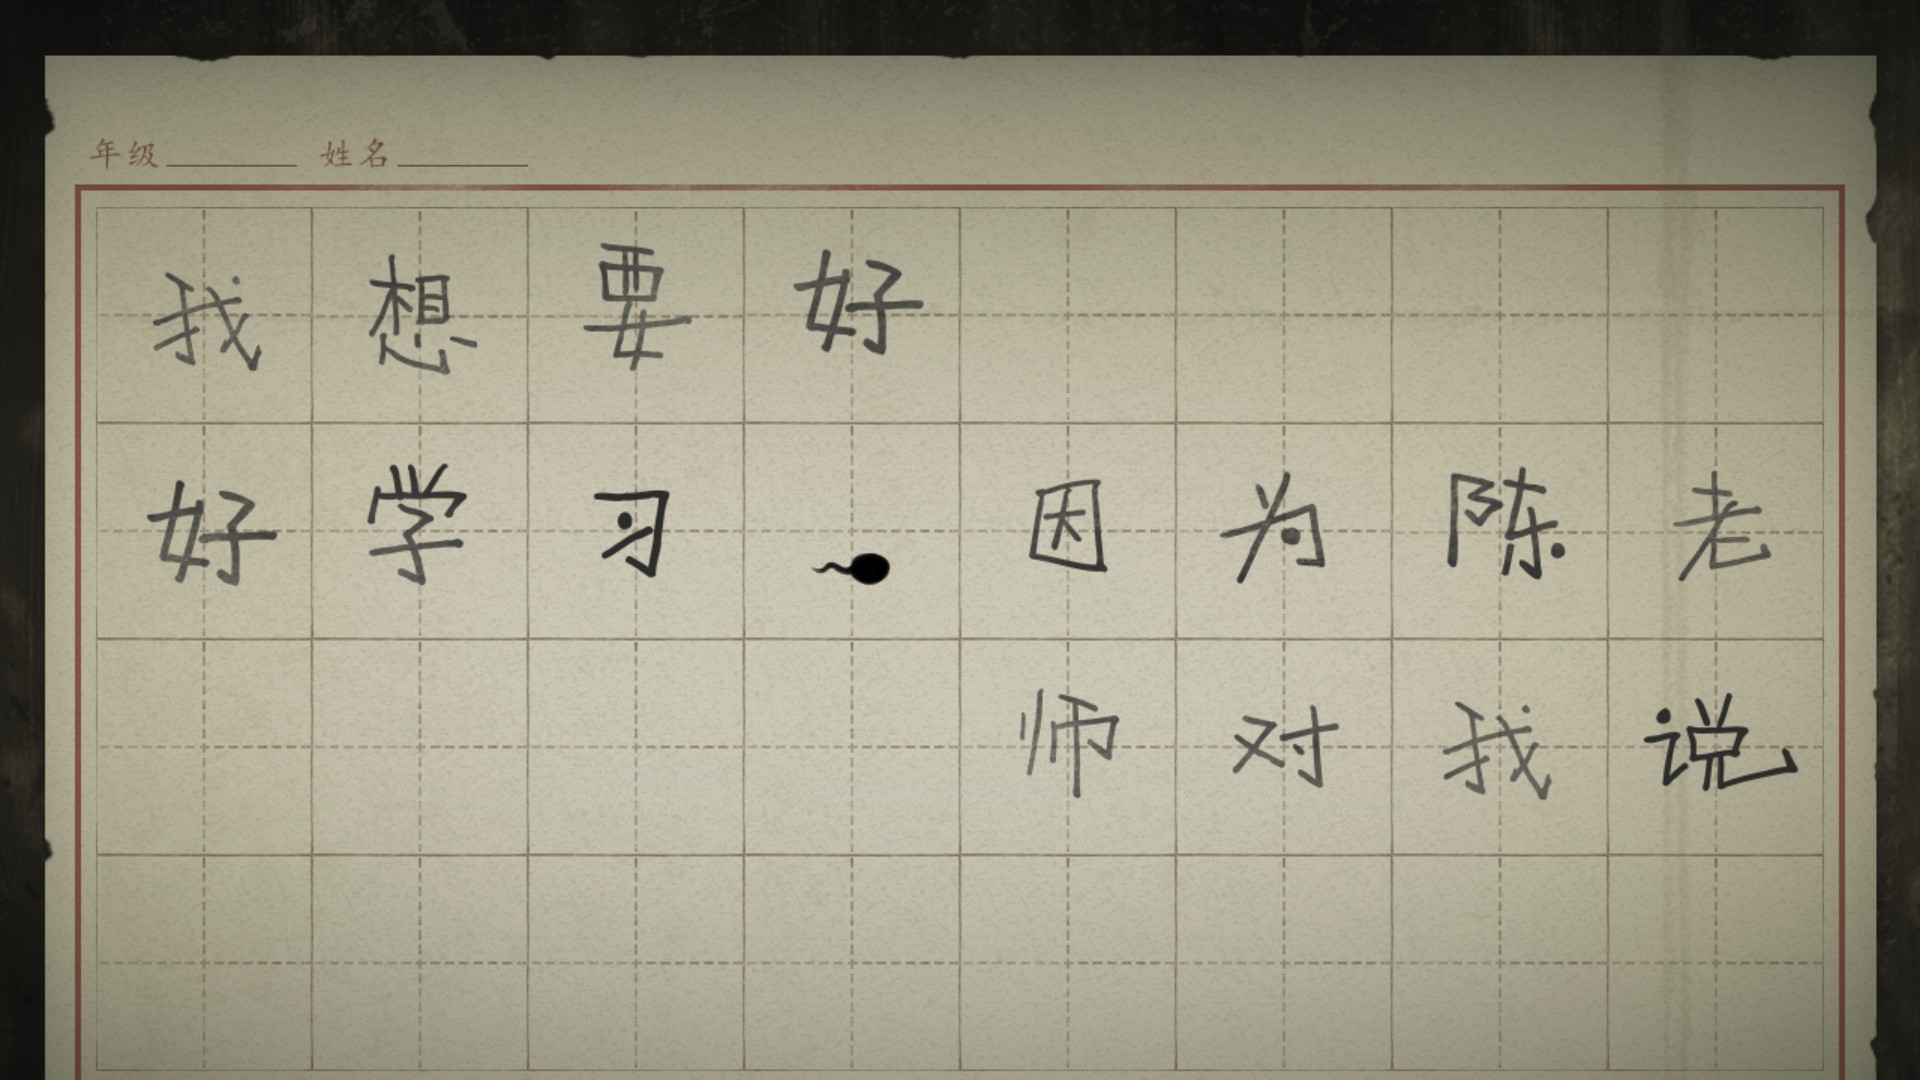 年级 姓名
我想要好
好学习 因为陈老
师对我说